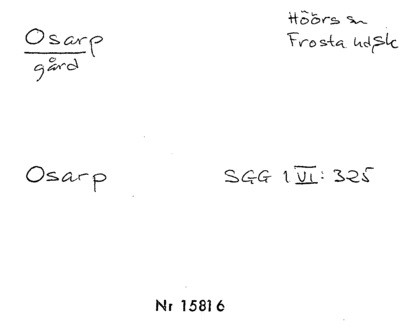 Osarp
gård
Höörs sn
Frosta hd, Sk
Osarp
SGG 1 VI: 325
Nr 15816